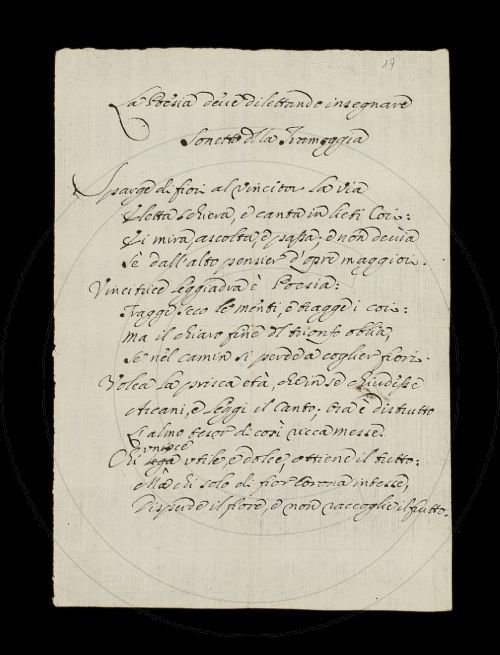 19
La Poesia deve dilettando insegnare
Sonetto della Trameggia
Sparge di fiori al vincitor la via
Eletta schiera, e canta in lieti Cori:
Ei mira, ascolta, e passa; e non devia
Se dall'alto pensier d'opre maggiori.
Vincitrice leggiadra è Poesia:
Tragge seco le menti, e tragge i cori:
ma il chiaro fine del trionfo oblia,
Se nel camin si perde a coglier fiori.
Volea la prisca età, che in se chiudesse
Arcani, e leggi il Canto; era è distrutto
Sì almo tesor di così ricca messe.
unisce
Chi lega utile, e dolce, ottiene il tutto:
Mà chi solo di fior Corona intesse,
Disperde il fiore, e non raccoglie il frutto.